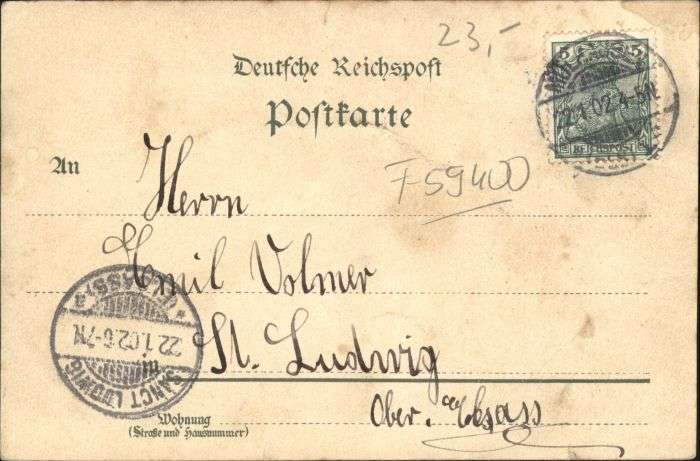 23,-
Deutsche Reichspost
Postkarte
5
22.1.02.4-5N.
REICHSPOST
An
Herrn
F 59400
Emil Volmer
St. Ludwig
Ober. Elsass
SANCT LUDWIG
22.1.02.6-7N
Wohnung
(Straße und Hausnummer)